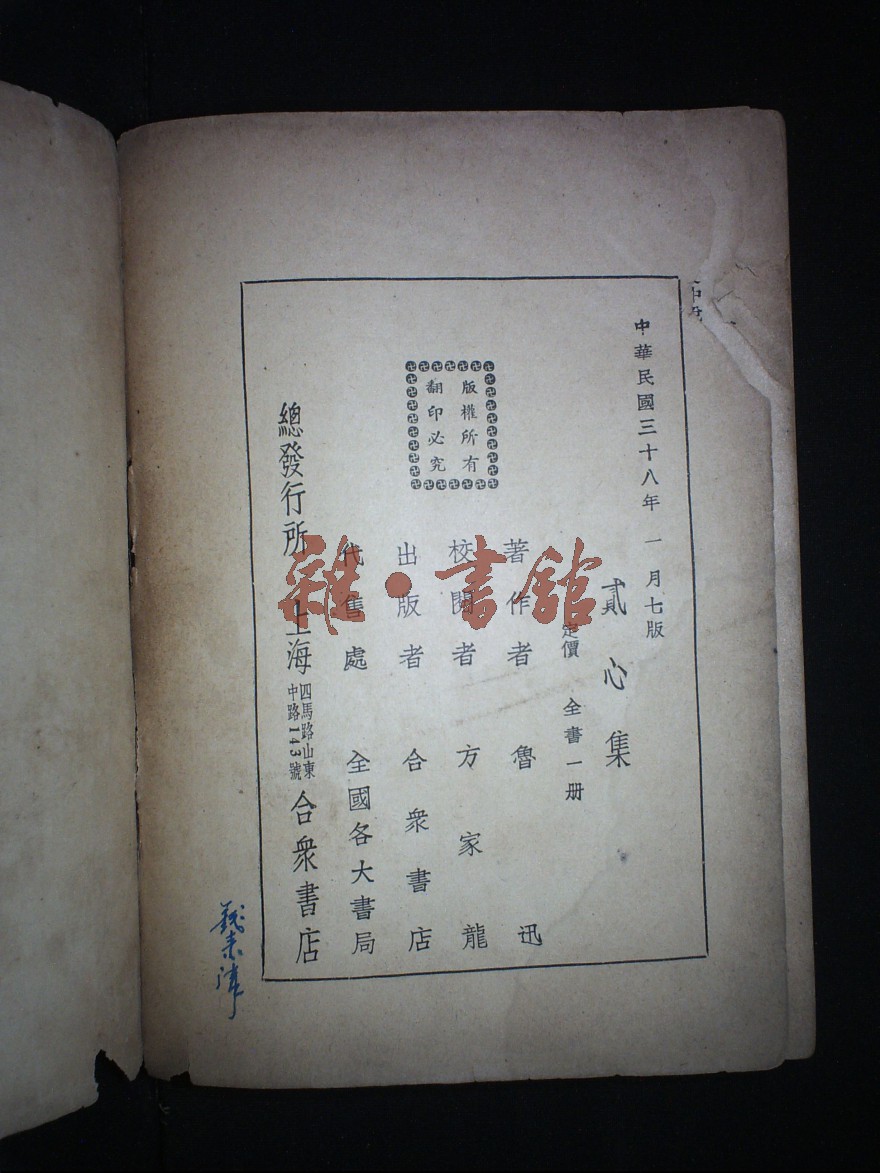 中華民國三十八年 一月七版
貳心集
定價 全書一册
著作者 魯迅
校閱者 方家龍
出版者 合衆書店
代售處 全國各大書局
總發行所 上海 四馬路山東中路143號 合衆書店
版權所有
翻印必究
雜·書舘